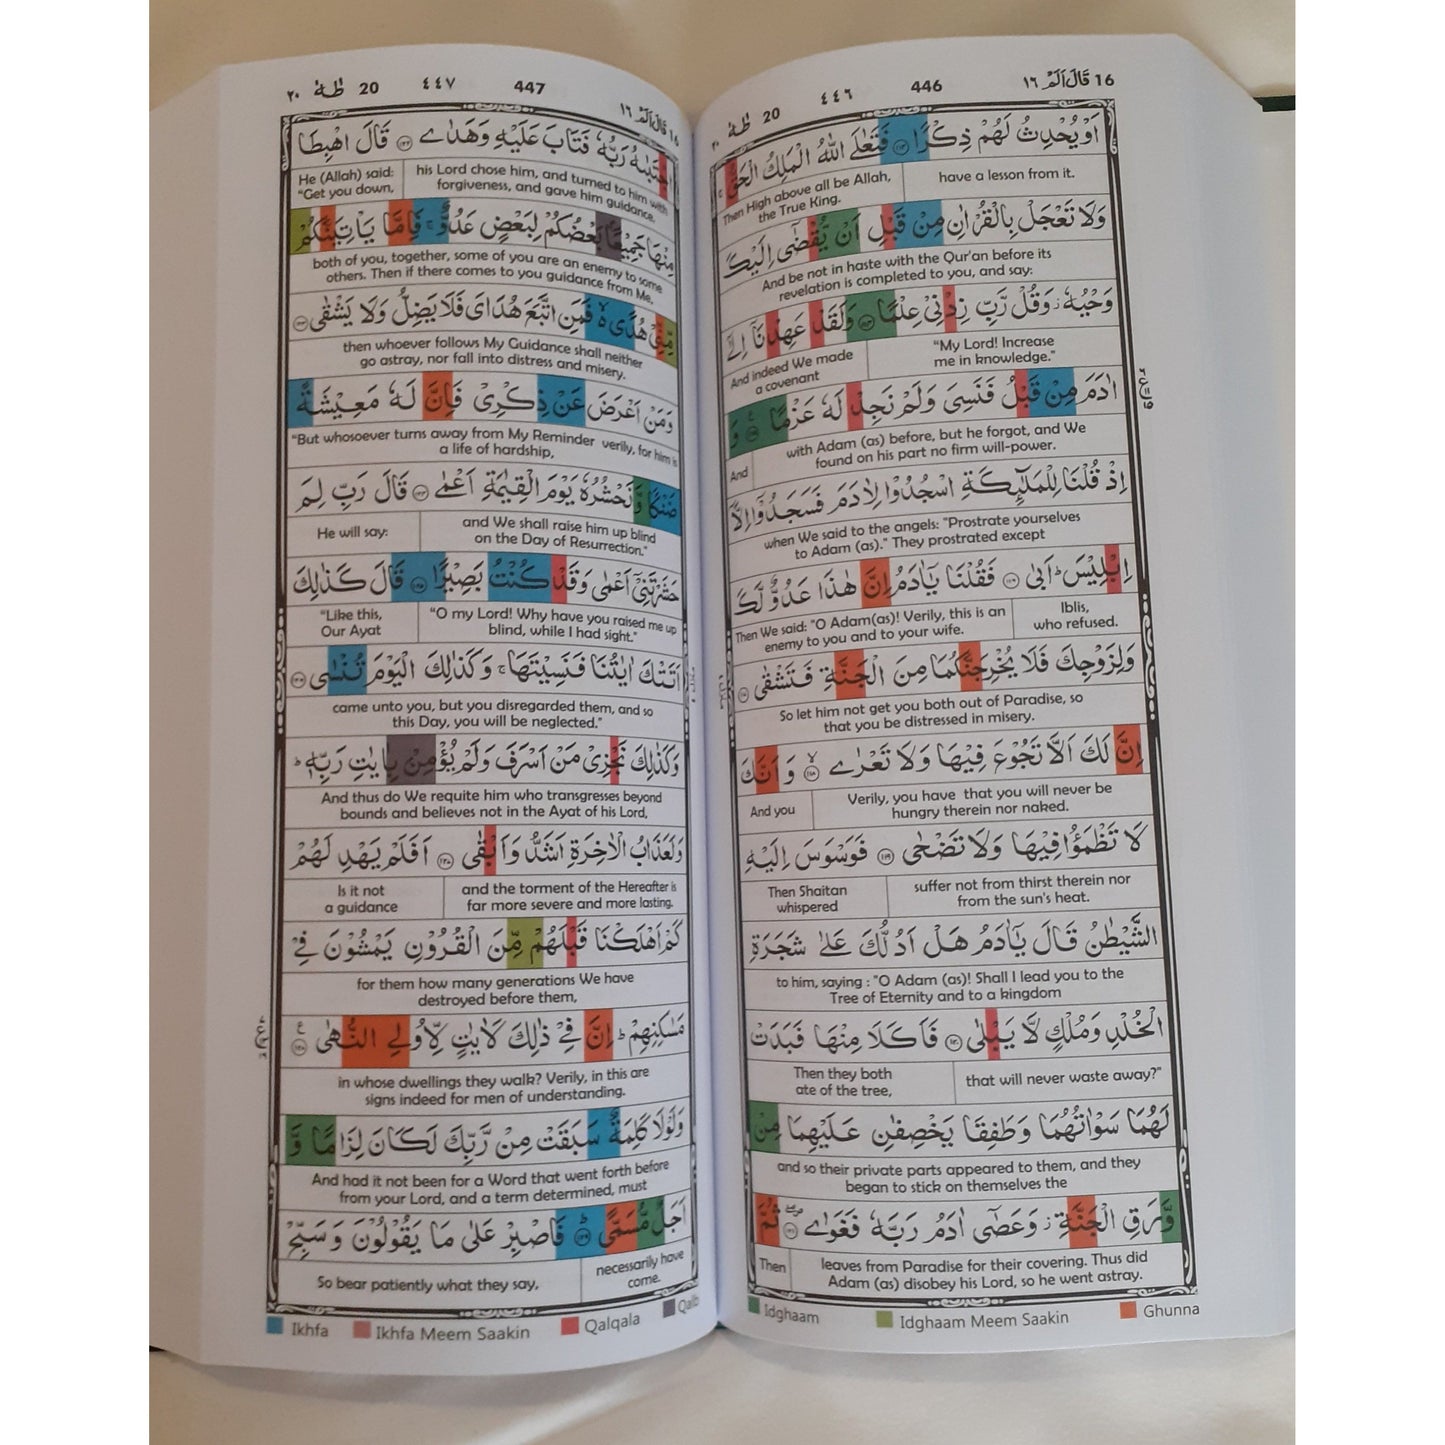 16 قَالَ اَلَمْ ١٦
446
٤٤٦
20 طٰهٰ ٢٠
اَوْ يُحْدِثُ لَهُمْ ذِكْرًا ۝١١٣ فَتَعٰلَى اللّٰهُ الْمَلِكُ الْحَقُّ ۚ
have a lesson from it.
Then High above all be Allah, the True King.
وَلَا تَعْجَلْ بِالْقُرْاٰنِ مِنْ قَبْلِ اَنْ يُّقْضٰٓى اِلَيْكَ
And be not in haste with the Qur'an before its
revelation is completed to you, and say:
وَحْيُهٗ ۫ وَقُلْ رَّبِّ زِدْنِيْ عِلْمًا ۝١١٤ وَلَقَدْ عَهِدْنَآ اِلٰٓى
"My Lord! Increase
me in knowledge."
And indeed We made
a covenant
اٰدَمَ مِنْ قَبْلُ فَنَسِيَ وَلَمْ نَجِدْ لَهٗ عَزْمًا ۝١١٥ وَ
with Adam (as) before, but he forgot, and We
found on his part no firm will-power.
And
اِذْ قُلْنَا لِلْمَلٰٓئِكَةِ اسْجُدُوْا لِاٰدَمَ فَسَجَدُوْٓا اِلَّآ
when We said to the angels: "Prostrate yourselves
to Adam (as)." They prostrated except
اِبْلِيْسَ ؕ اَبٰى ۝١١٦ فَقُلْنَا يٰٓاٰدَمُ اِنَّ هٰذَا عَدُوٌّ لَّكَ
Iblis,
who refused.
Then We said: "O Adam(as)! Verily, this is an
enemy to you and to your wife.
وَلِزَوْجِكَ فَلَا يُخْرِجَنَّكُمَا مِنَ الْجَنَّةِ فَتَشْقٰى ۝١١٧
So let him not get you both out of Paradise, so
that you be distressed in misery.
اِنَّ لَكَ اَلَّا تَجُوْعَ فِيْهَا وَلَا تَعْرٰى ۝١١٨ وَ اَنَّكَ
Verily, you have that you will never be
hungry therein nor naked.
And you
لَا تَظْمَؤُا فِيْهَا وَلَا تَضْحٰى ۝١١٩ فَوَسْوَسَ اِلَيْهِ
suffer not from thirst therein nor
from the sun's heat.
Then Shaitan
whispered
الشَّيْطٰنُ قَالَ يٰٓاٰدَمُ هَلْ اَدُلُّكَ عَلٰى شَجَرَةِ
to him, saying : "O Adam (as)! Shall I lead you to the
Tree of Eternity and to a kingdom
الْخُلْدِ وَمُلْكٍ لَّا يَبْلٰى ۝١٢٠ فَاَكَلَا مِنْهَا فَبَدَتْ
that will never waste away?"
Then they both
ate of the tree,
لَهُمَا سَوْاٰتُهُمَا وَطَفِقَا يَخْصِفٰنِ عَلَيْهِمَا مِنْ
and so their private parts appeared to them, and they
began to stick on themselves the
وَّرَقِ الْجَنَّةِ ۫ وَعَصٰٓى اٰدَمُ رَبَّهٗ فَغَوٰى ۝١٢١ ثُمَّ
leaves from Paradise for their covering. Thus did
Adam (as) disobey his Lord, so he went astray.
Then
Idghaam
Idghaam Meem Saakin
Ghunna
16 قَالَ اَلَمْ ١٦
447
٤٤٧
20 طٰهٰ ٢٠
اجْتَبٰىهُ رَبُّهٗ فَتَابَ عَلَيْهِ وَهَدٰى ۝١٢٢ قَالَ اهْبِطَا
his Lord chose him, and turned to him with
forgiveness, and gave him guidance.
He (Allah) said:
"Get you down,
مِنْهَا جَمِيْعًا بَعْضُكُمْ لِبَعْضٍ عَدُوٌّ ۚ فَاِمَّا يَاْتِيَنَّكُمْ
both of you, together, some of you are an enemy to some
others. Then if there comes to you guidance from Me,
مِّنِّيْ هُدًى ۙ فَمَنِ اتَّبَعَ هُدَايَ فَلَا يَضِلُّ وَلَا يَشْقٰى ۝١٢٣
then whoever follows My Guidance shall neither
go astray, nor fall into distress and misery.
وَمَنْ اَعْرَضَ عَنْ ذِكْرِيْ فَاِنَّ لَهٗ مَعِيْشَةً
"But whosoever turns away from My Reminder verily, for him is
a life of hardship,
ضَنْكًا وَّنَحْشُرُهٗ يَوْمَ الْقِيٰمَةِ اَعْمٰى ۝١٢٤ قَالَ رَبِّ لِمَ
and We shall raise him up blind
on the Day of Resurrection."
He will say:
حَشَرْتَنِيْٓ اَعْمٰى وَقَدْ كُنْتُ بَصِيْرًا ۝١٢٥ قَالَ كَذٰلِكَ
"O my Lord! Why have you raised me up
blind, while I had sight."
"Like this,
Our Ayat
اَتَتْكَ اٰيٰتُنَا فَنَسِيْتَهَا ۚ وَكَذٰلِكَ الْيَوْمَ تُنْسٰى ۝١٢٦
came unto you, but you disregarded them, and so
this Day, you will be neglected."
وَكَذٰلِكَ نَجْزِيْ مَنْ اَسْرَفَ وَلَمْ يُؤْمِنْۢ بِاٰيٰتِ رَبِّهٖ ؕ
And thus do We requite him who transgresses beyond
bounds and believes not in the Ayat of his Lord,
وَلَعَذَابُ الْاٰخِرَةِ اَشَدُّ وَاَبْقٰى ۝١٢٧ اَفَلَمْ يَهْدِ لَهُمْ
and the torment of the Hereafter is
far more severe and more lasting.
Is it not
a guidance
كَمْ اَهْلَكْنَا قَبْلَهُمْ مِّنَ الْقُرُوْنِ يَمْشُوْنَ فِيْ
for them how many generations We have
destroyed before them,
مَسٰكِنِهِمْ ؕ اِنَّ فِيْ ذٰلِكَ لَاٰيٰتٍ لِّاُولِي النُّهٰى ۝١٢٨
in whose dwellings they walk? Verily, in this are
signs indeed for men of understanding.
وَلَوْلَا كَلِمَةٌ سَبَقَتْ مِنْ رَّبِّكَ لَكَانَ لِزَامًا وَّ
And had it not been for a Word that went forth before
from your Lord, and a term determined, must
اَجَلٌ مُّسَمًّى ۝١٢٩ فَاصْبِرْ عَلٰى مَا يَقُوْلُوْنَ وَسَبِّحْ
necessarily have
come.
So bear patiently what they say,
Ikhfa
Ikhfa Meem Saakin
Qalqala